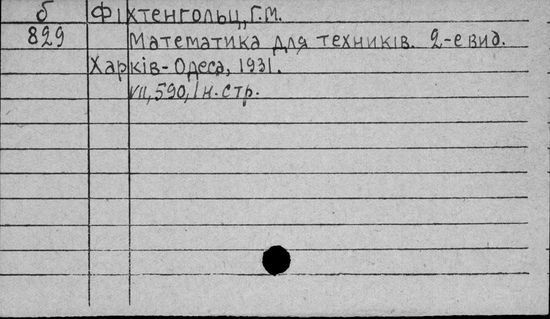 б Фіхтенгольц, Г.М.
829 Математика для техників. 2-е вид.
Харків-Одеса, 1931.
VII, 590, 1 н. стр.